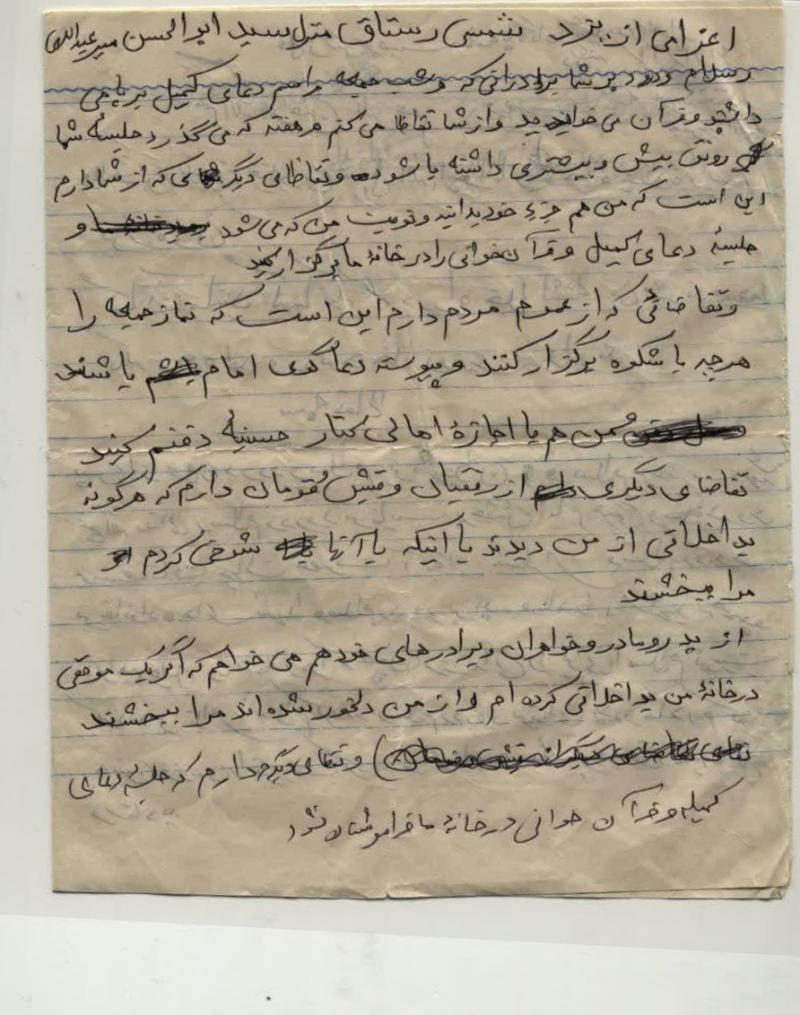 اعزامی از یزد شمسی رستاق منزل سید ابوالحسن میرعبداللهی
وسلام و درود بر شما برادرانی که شب جمعه مراسم دعای کمیل بر پا می
داشتید و قرآن می خواندید و از شما تقاضا می کنم هر هفته که می گذرد جلسه شما
رونق بیش و بیشتری داشته باشد و تقاضای دیگر که از شما دارم
این است که من هم جزء خود بدانید و نوبت من که می شود و
جلسهٔ دعای کمیل و قرآن خوانی را در خانهٔ ما برگزار کنید
و تقاضائی که از عموم مردم دارم این است که نماز جمعه را
هر چه با شکوه برگزار کنند و پیوسته دعا گوی امام باشند
من هم با اجازهٔ اهالی کنار حسینیه دفنم کنید
تقاضای دیگری از رفیقان و قومان دارم که هرگونه
بد اخلاقی از من دیدند یا اینکه با آنها شوخی کردم
مرا ببخشند
از پدر و مادر و خواهران و برادرهای خود هم می خواهم که اگر یک موقعی
در خانهٔ من بد اخلاقی کرده ام و از من دلخور شده اند مرا ببخشند
و تقاضای دیگر دارم که جلسهٔ دعای
کمیل و قرآن خوانی در خانهٔ ما فراموشتان نشود